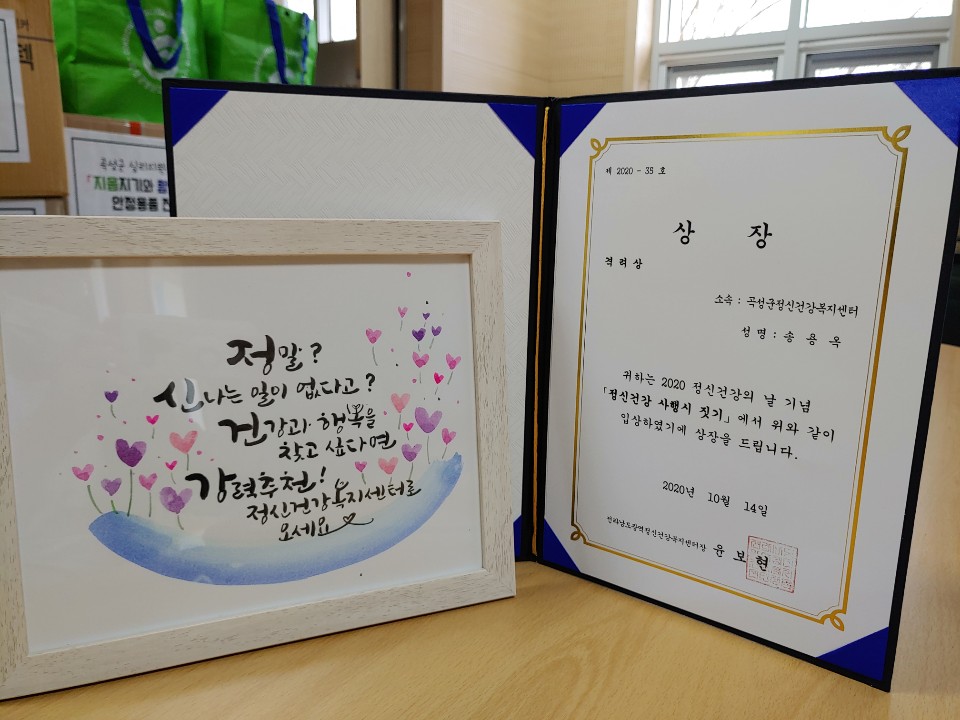 곡성군 심리지원
「지움지기와 함
안정용품 전
정말?
신나는 일이 없다고?
건강과 행복을
찾고 싶다면
강력추천!
정신건강복지센터로
오세요
제 2020 - 35 호
상 장
격 려 상
소속 : 곡성군정신건강복지센터
성 명 : 송 용 옥
귀하는 2020 정신건강의 날 기념
「정신건강 사행시 짓기」에서 위와 같이
입상하였기에 상장을 드립니다.
2020년 10월 14일
전라남도광역정신건강복지센터장 윤 보 현